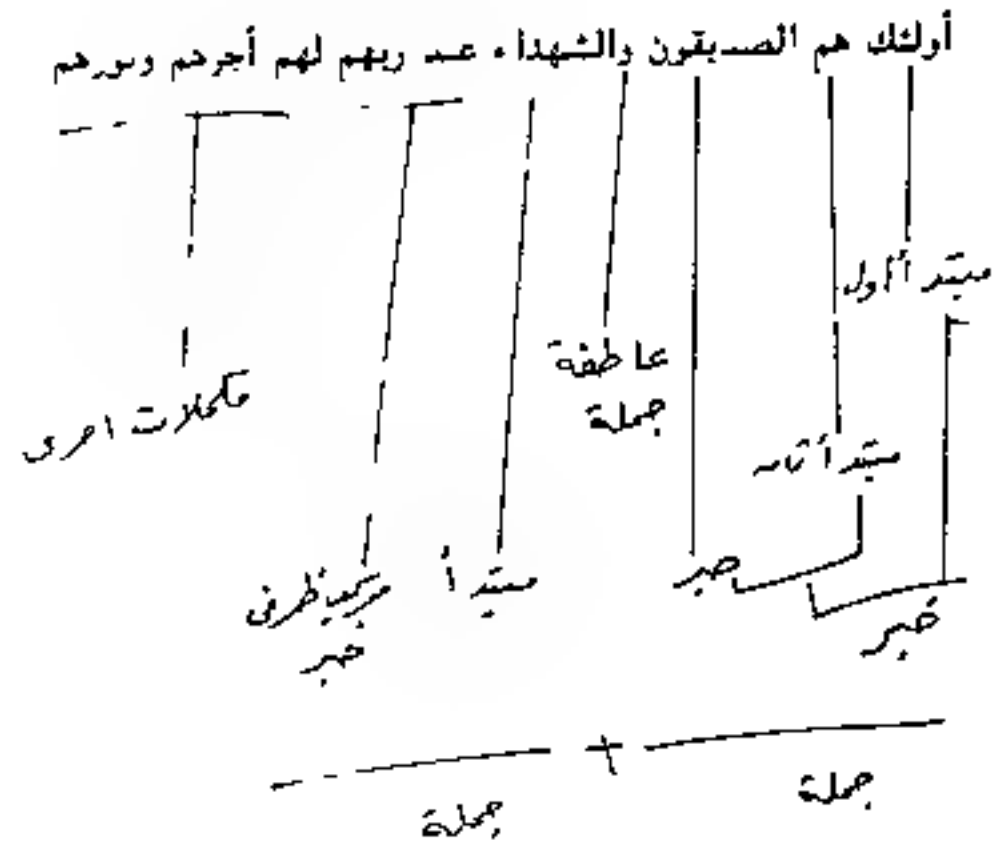 أولئك هم الصديقون والشهداء عند ربهم لهم أجرهم ونورهم
مبتدأ أول
عاطفة
جملة
مكملات اخرى
مبتدأ ثان
خبر
مبتدأ
مركب ظرفى
خبر
خبر
جملة
+
جملة